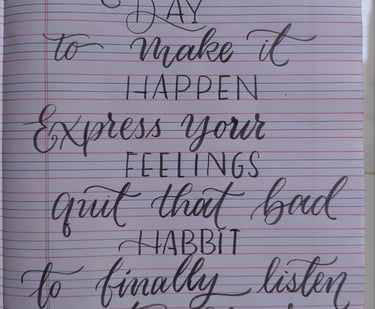 DAY
to make it
HAPPEN
Express your
FEELINGS
quit that bad
HABBIT
to finally listen